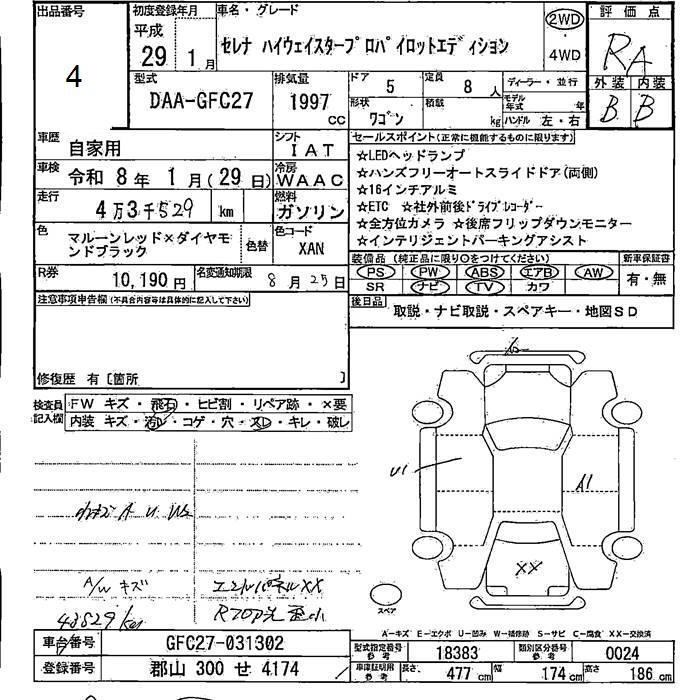 出品番号
4
初度登録年月
平成
29 1月
車名・グレード
セレナ ハイウェイスタープロパイロットエディション
2WD
・
4WD
評価点
RA
外装 内装
B B
型式
DAA-GFC27
排気量
1997
CC
ドア 5
定員 8 人
ディーラー・並行
形状
ワゴン
積載
kg
モデル年式 年
ハンドル 左・右
車歴
自家用
シフト
IAT
車検
令和 8年 1月(29日)
冷房
WAAC
走行
4万3千529 km
燃料
ガソリン
色
マルーンレッド×ダイヤモンドブラック
色替
色コード
XAN
R券
10,190円
名変通知期限
8月25日
セールスポイント(正常に機能するものに限ります)
☆LEDヘッドランプ
☆ハンズフリーオートスライドドア(両側)
☆16インチアルミ
☆ETC ☆社外前後ドライブレコーダー
☆全方位カメラ ☆後席フリップダウンモニター
☆インテリジェントパーキングアシスト
装備品(純正品に限り○をつけてください)
PS PW ABS エアB AW
SR ナビ TV カワ
新車保証書
有・無
後日品
取説・ナビ取説・スペアキー・地図SD
注意事項申告欄(不具合内容等は具体的に記入して下さい)
修復歴 有〔箇所 〕
検査員記入欄
FW キズ・飛石・ヒビ割・リペア跡・×要
内装 キズ・汚レ・コゲ・穴・スレ・キレ・破レ
A U W2
A/W キズ
エンドパネルXX
43529km
U1
A1
XX
スペア
A-キズ E-エクボ U-凹み W-補修跡 S-サビ C-腐食 XX-交換済
車台番号
GFC27-031302
登録番号
郡山 300 せ 4174
型式指定番号
参考
18383
類別区分番号
参考
0024
車庫証明用
参考
長さ 477cm 幅 174cm 高さ 186cm